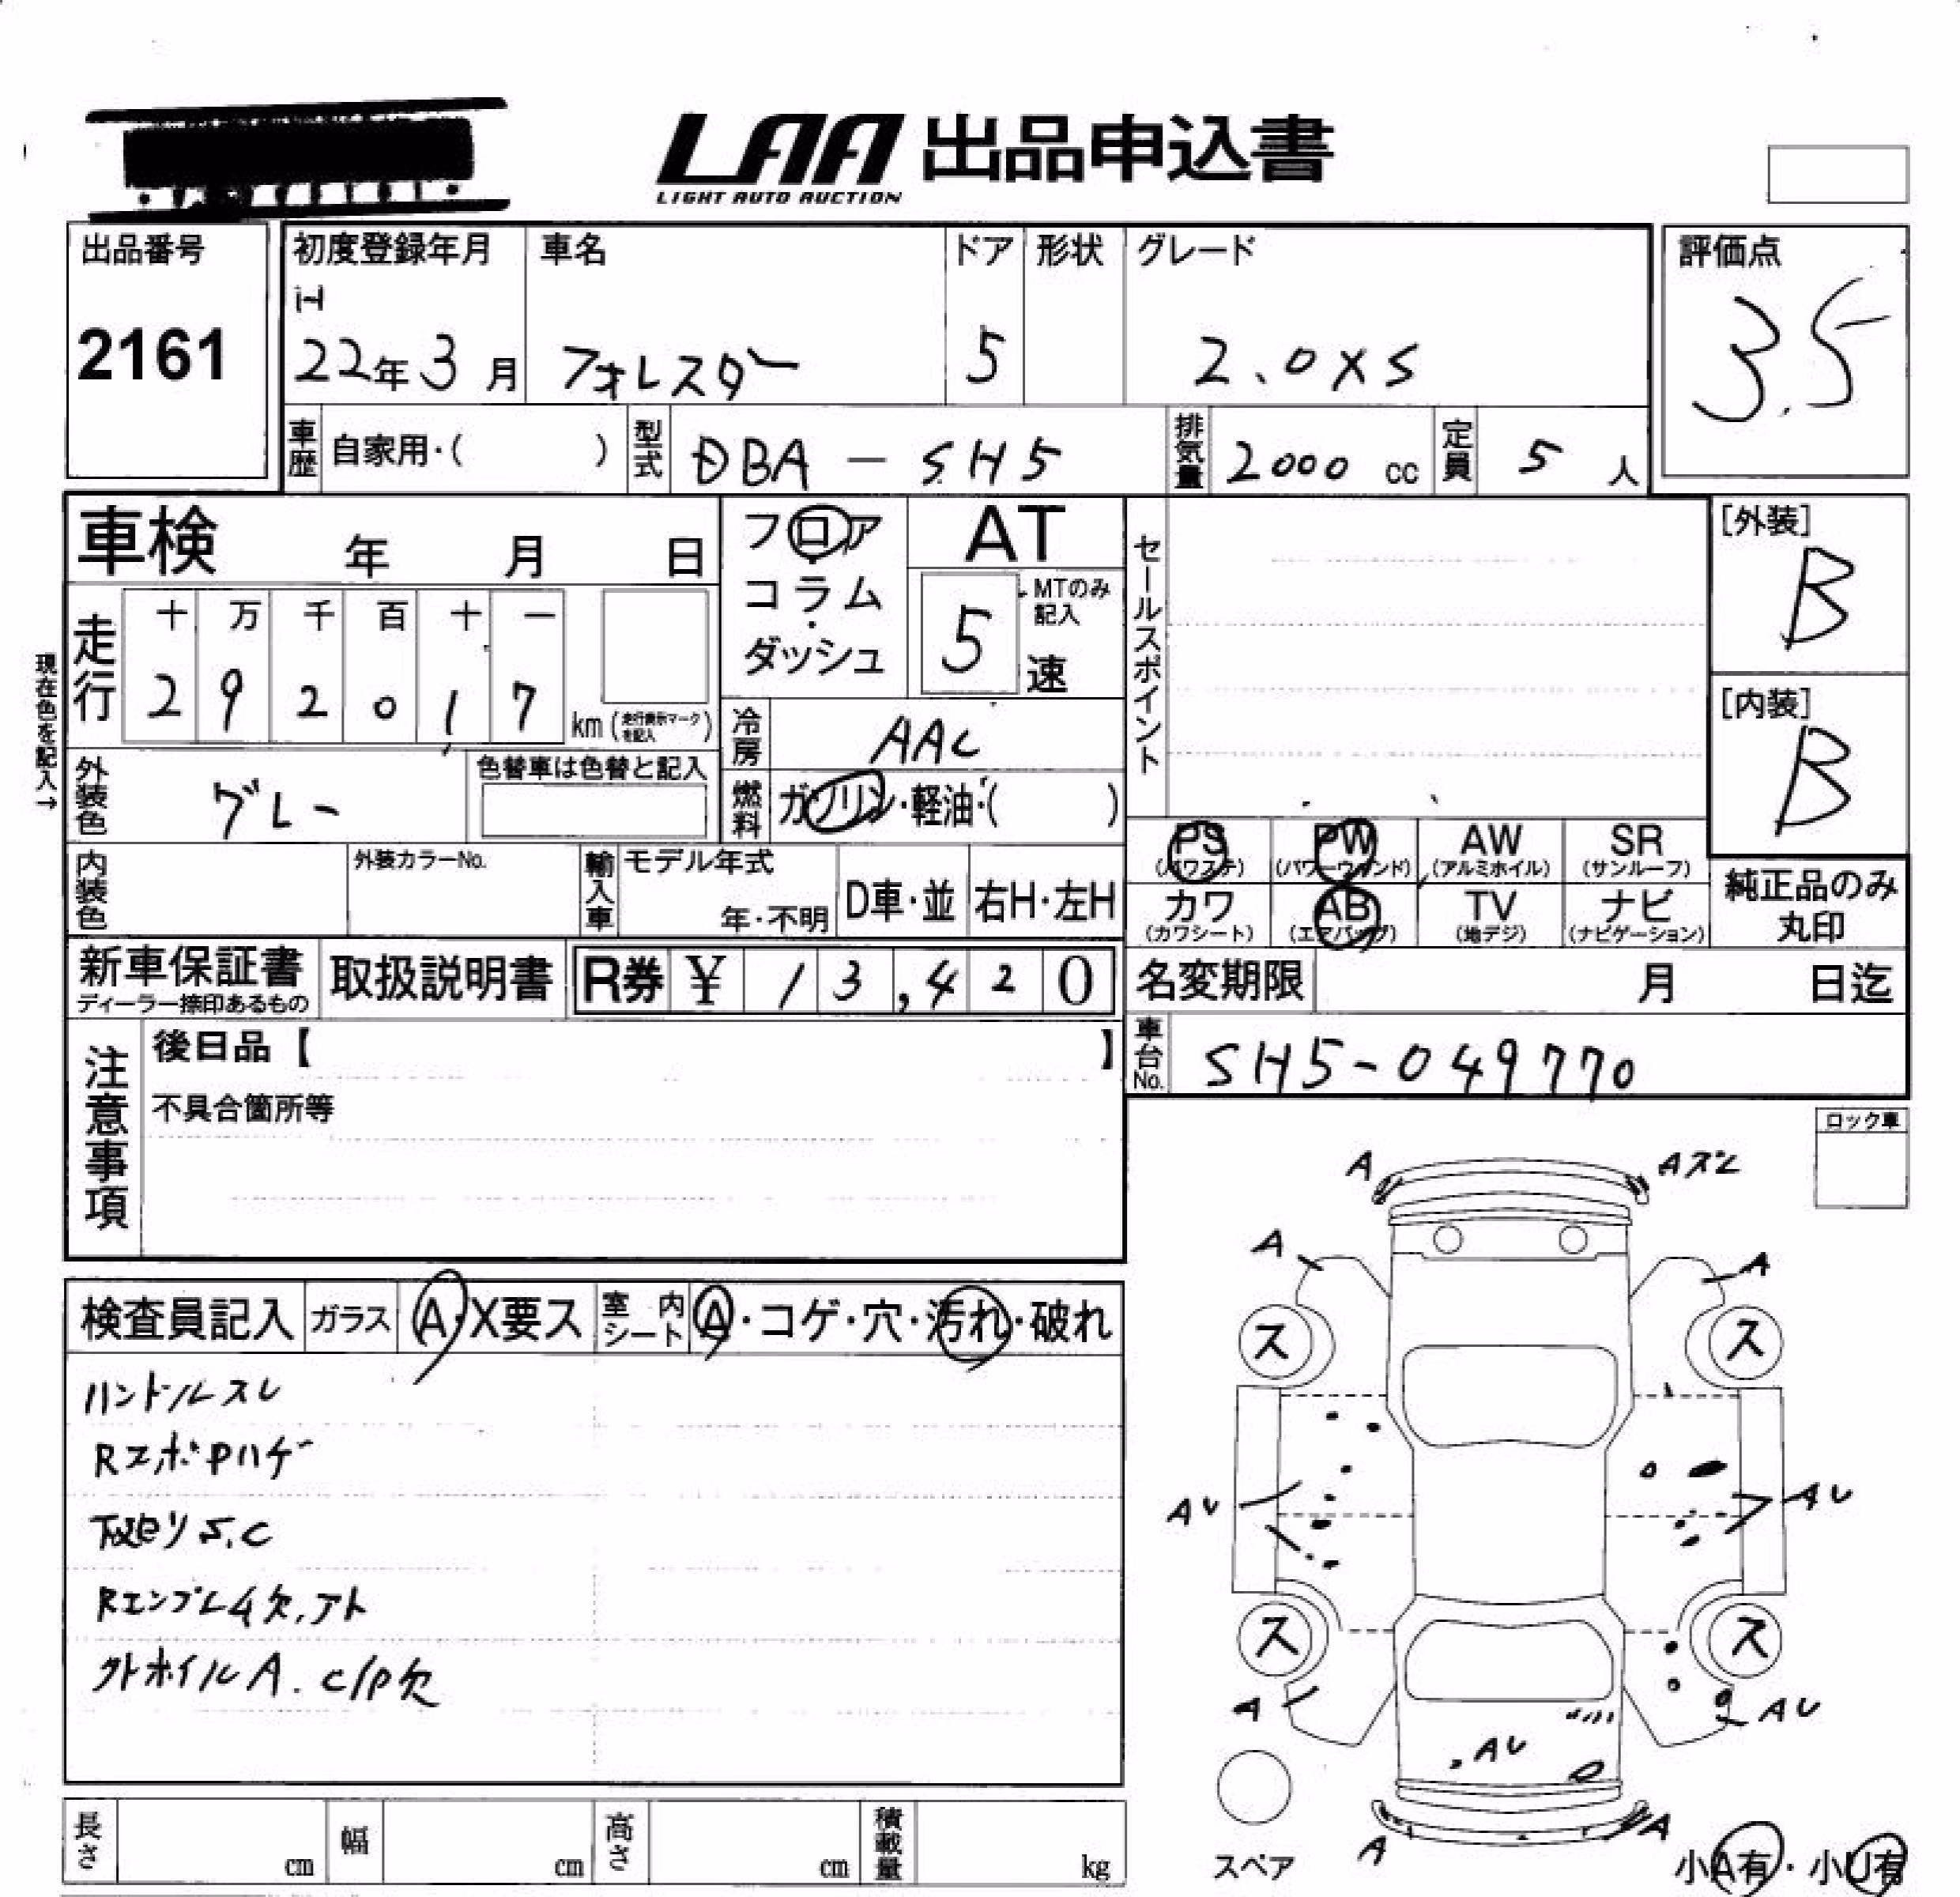 LAA 出品申込書
LIGHT AUTO AUCTION
出品番号
2161
初度登録年月
H
22年3月
車名
フォレスター
ドア
5
形状
グレード
2.0XS
評価点
3.5
車歴
自家用・( )
型式
DBA-SH5
排気量
2000 cc
定員
5 人
車検 年 月 日
フロア
・
コラム
・
ダッシュ
AT
5 速
MTのみ
記入
セールスポイント
[外装]
B
[内装]
B
現在色を記入→
走行
十 万 千 百 十 一
2 9 2 0 1 7
km (走行表示マークを記入)
冷房
AAC
外装色
グレー
色替車は色替と記入
燃料
ガソリン・軽油・( )
内装色
外装カラーNo.
輸入車
モデル年式
年・不明
D車・並
右H・左H
PS
(パワステ)
PW
(パワーウィンド)
AW
(アルミホイル)
SR
(サンルーフ)
カワ
(カワシート)
AB
(エアバッグ)
TV
(地デジ)
ナビ
(ナビゲーション)
純正品のみ
丸印
新車保証書
ディーラー捺印あるもの
取扱説明書
R券 ¥ 13,420
名変期限 月 日迄
車台No.
SH5-049770
注意事項
後日品【 】
不具合箇所等
ロック車
検査員記入
ガラス
A・X要ス
室内
シート
A・コゲ・穴・汚れ・破れ
ハンドルスレ
Rエンブレム欠.アト
C/P欠
A
Aズレ
A
A
ス
ス
AU
AU
ス
ス
A
AU
AU
A
A
スペア
小A有・小U有
長さ cm
幅 cm
高さ cm
積載量 kg